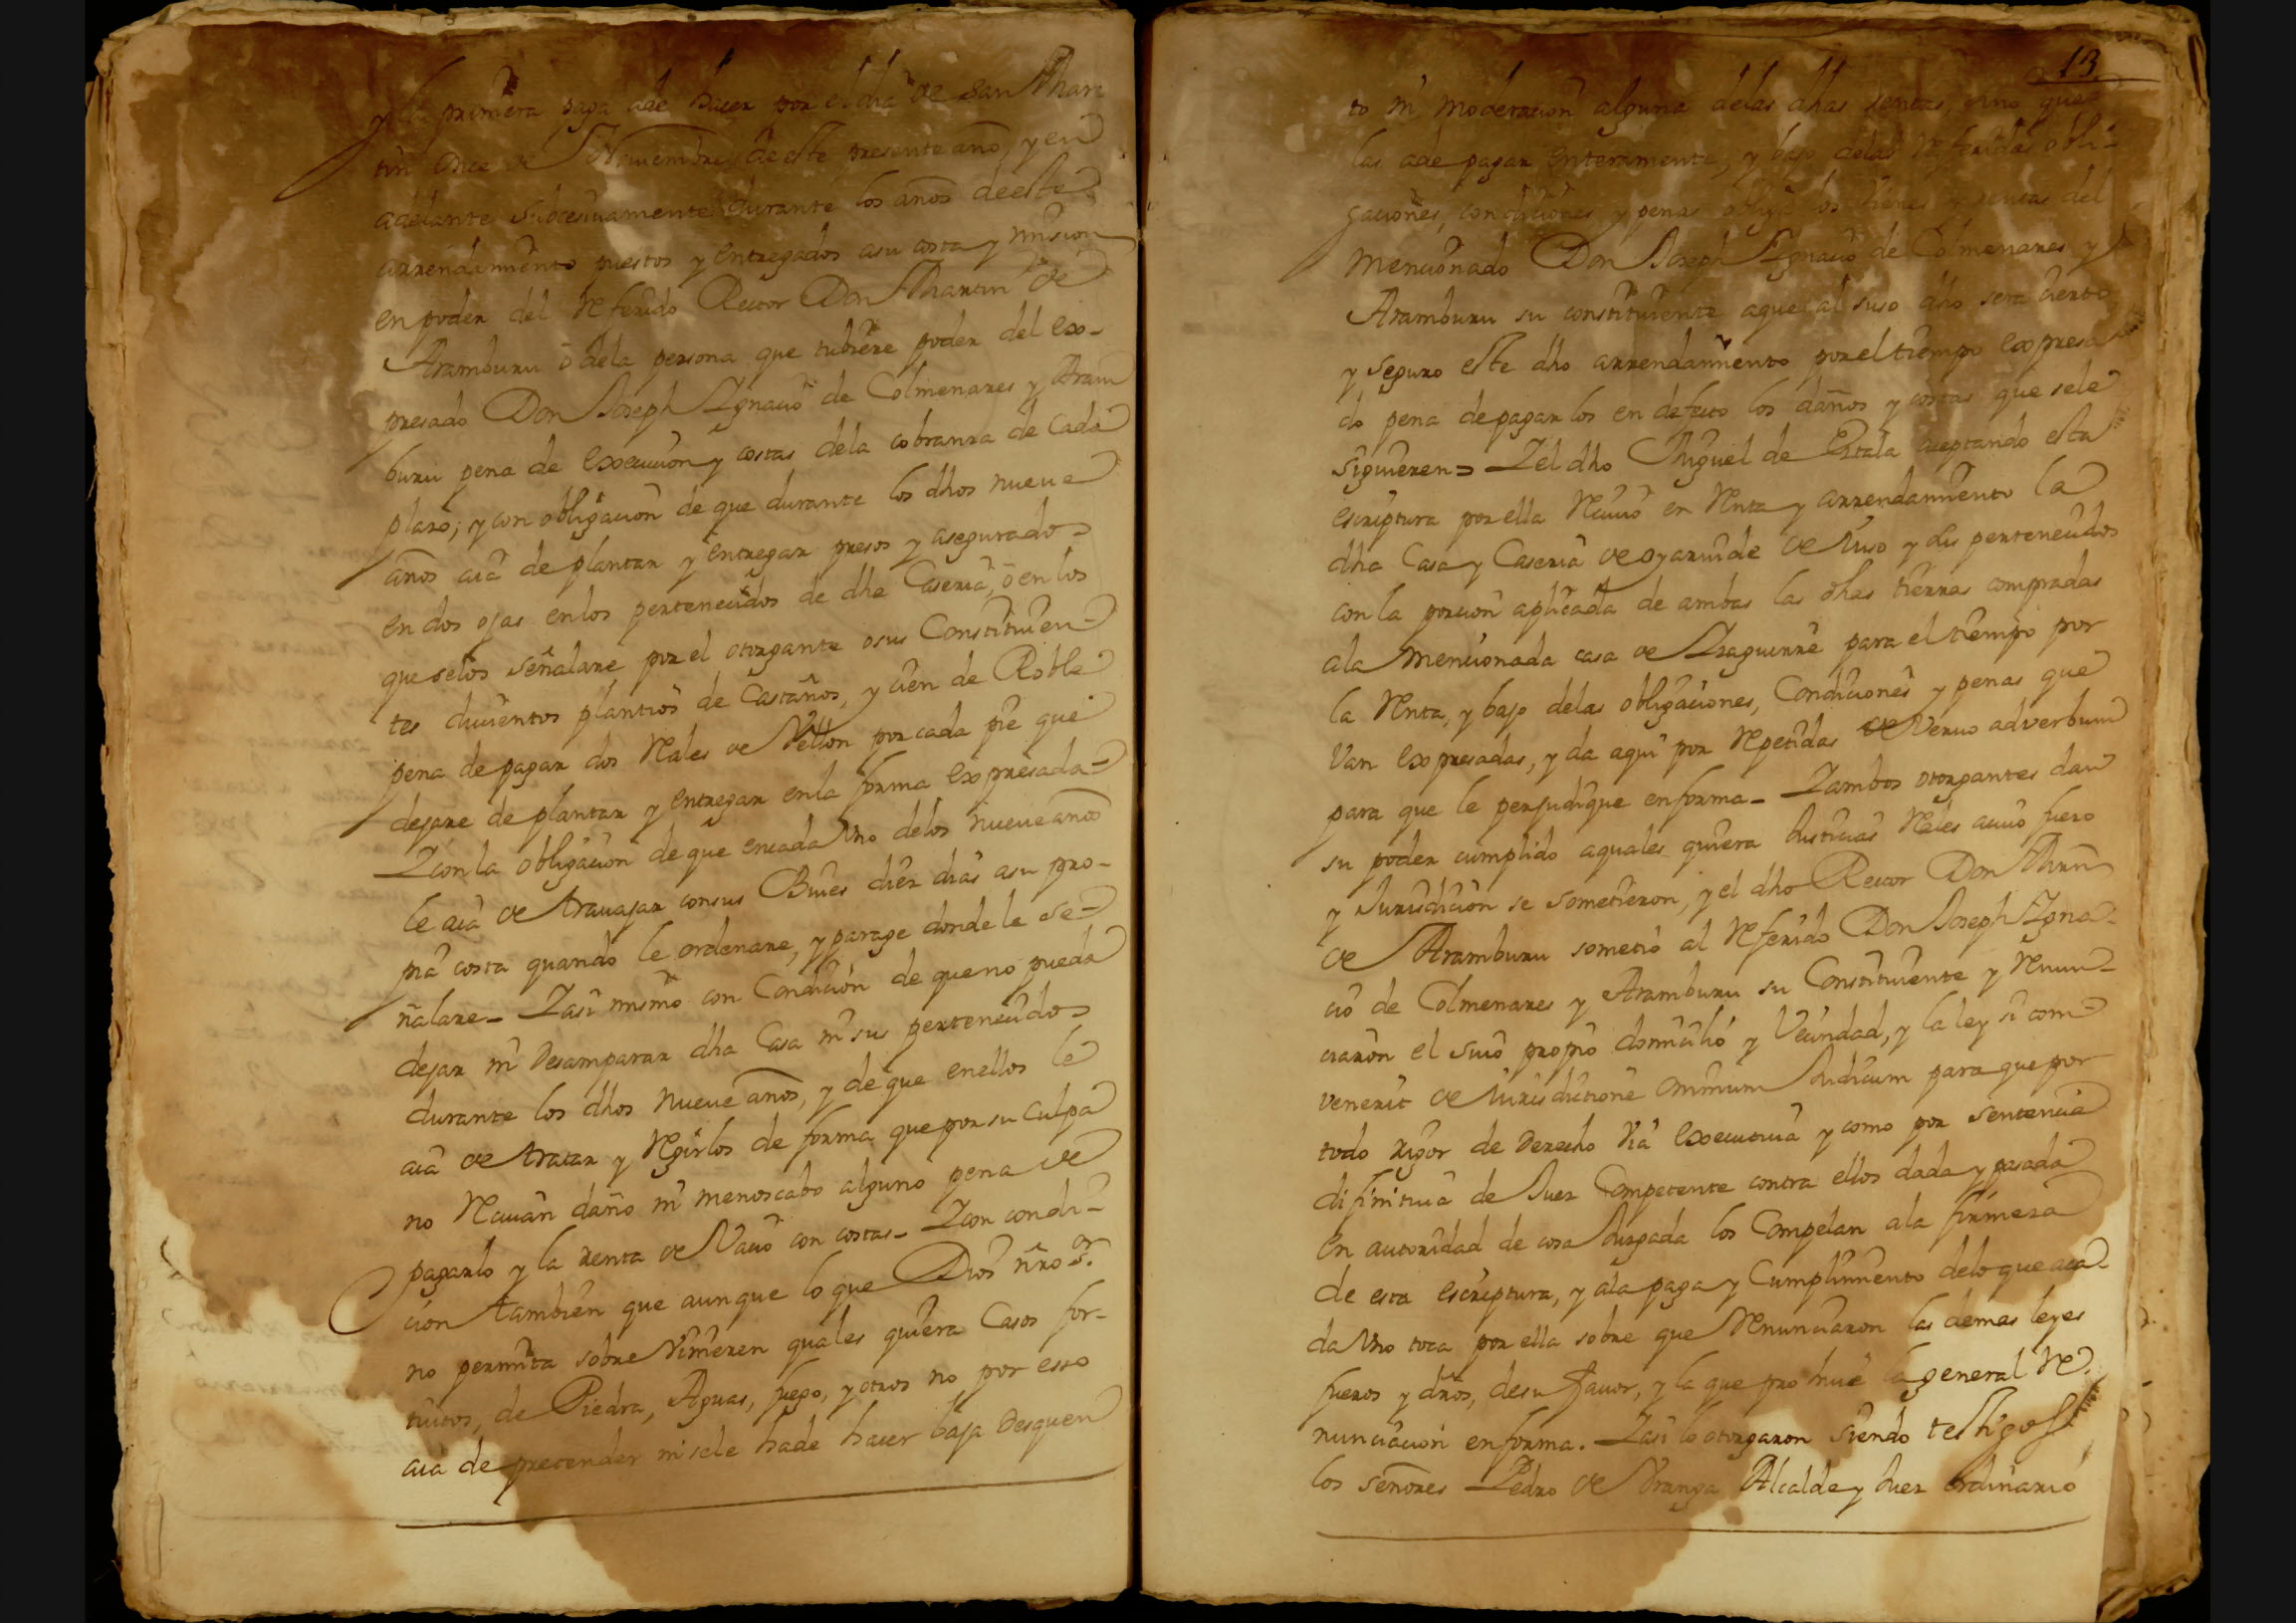 y la primera paga ade hacer por el dia de San Mar
tin once de Noviembre de este presente año, y en
adelante subcesivamente durante los años de este
arrendamiento puestos y entregados asu costa y mision
en poder del referido Rector Don Martin de
Aramburu ō dela persona que tubiere poder del ex-
presado Don Joseph Ignacio de Colmenares y Aram
buru pena de execucion y costas dela cobranza de cada
plazo; y con obligacion de que durante los dhos nueve
años aia de plantar y entregar presos y asegurados
en dos ojas enlos pertenecidos de dha Caseria, ō en los
que selos señalare por el otorgante o sus Constituien-
tes ducientos plantios de Castaños, y cien de Roble
pena de pagar dos Reales de Vellon por cada pie que
dejare de plantar y entregar enla forma expresada-
Y con la obligacion de que encada Uno delos nueve años
le aia de travajar consus Bueies diez dias asu pro-
pia costa quando le ordenare, y parage donde le se-
ñalare- Y asi mismo con Condicion de que no pueda
dejar ni desamparar dha Casa ni sus pertenecidos
durante los dhos nueve años, y de que enellos le
aia de tratar y Regirlos de forma que por su culpa
no Reciuan daño ni menoscabo alguno pena de
pagarlo y la renta de Vacio con costas- Y con condi-
cion tambien que aunque lo que Dios nřo Sor.
no permita sobre Vinieren quales quiera Casos for-
tuitos, de Piedra, Aguas, fuego, y otros no por esso
aia de pretender ni sele hade hacer baja Desquen
13
to ni moderacion alguna delas dhas rentas, sino que
las ade pagar enteramente, y bajo delas Referidas obli-
gaciones, condiciones y penas obliga los bienes y rentas del
mencionado Don Joseph Ignacio de Colmenares y
Aramburu su constituiente aque al suso dho sera cierto
y seguro este dho arrendamiento por el tiempo expresa
do pena de pagarlos en defecto los daños y costas que sele
siguieren= Y el dho Miguel de Ertala aceptando esta
escriptura por ella Recivio en Renta y arrendamiento la
dha Casa y Caseria de oyarvide de Yuso y sus pertenecidos
con la porcion aplicada de ambas las dhas tierras compradas
ala mencionada casa de Yraguirre para el tiempo por
la Renta, y bajo delas obligaciones, Condiciones y penas que
Van expresadas, y da aqui por Repetidas de Vervo adverbum
para que le perjudique enforma- Y ambos otorgantes dan
su poder cumplido aquales quiera Justicias Reales acuio fuero
y Jurisdicion se sometieron, y el dho Rector Don Mrn
de Aramburu sometió al Referido Don Joseph Igna-
cio de Colmenares y Aramburu su Constituiente y Renun-
ciaron el suio propio domicilio y Vecindad, y la ley si com
venerit de Jurisdictione Omnium Judicum para que por
todo rigor de Derecho via executiva y como por sentencia
difinitiva de Juez Competente contra ellos dada y pasada
en autoridad de cosa Juzgada los Compelan ala firmeza
de esta escriptura, y ala paga y Cumplimiento delo que aca-
da Uno toca por ella sobre que Renunciaron las demas leyes
fueros y dřos, desu favor, y la que prohive la general Re-
nunciacion enforma. Y asi lo otorgaron siendo testigos
los señores Pedro de Uranga Alcalde y Juez ordinario